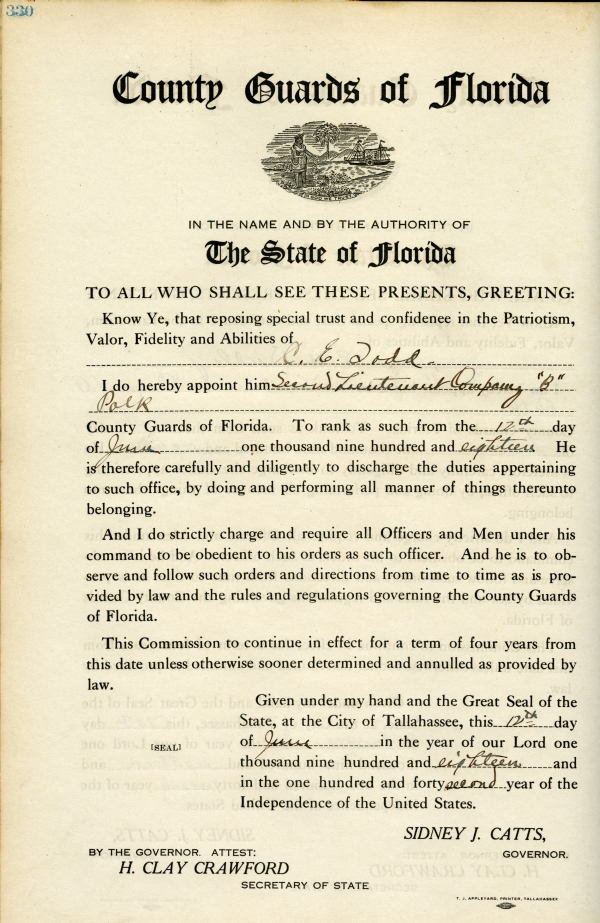 330
County Guards of Florida
IN THE NAME AND BY THE AUTHORITY OF
The State of Florida
TO ALL WHO SHALL SEE THESE PRESENTS, GREETING:
Know Ye, that reposing special trust and confidence in the Patriotism,
Valor, Fidelity and Abilities of
C. E. Todd.
I do hereby appoint him Second Lieutenant Company "B"
Polk
County Guards of Florida. To rank as such from the 12th day
of June one thousand nine hundred and eighteen He
is therefore carefully and diligently to discharge the duties appertaining
to such office, by doing and performing all manner of things thereunto
belonging.
And I do strictly charge and require all Officers and Men under his
command to be obedient to his orders as such officer. And he is to ob-
serve and follow such orders and directions from time to time as is pro-
vided by law and the rules and regulations governing the County Guards
of Florida.
This Commission to continue in effect for a term of four years from
this date unless otherwise sooner determined and annulled as provided by
law.
Given under my hand and the Great Seal of the
State, at the City of Tallahassee, this 12th day
[SEAL] of June in the year of our Lord one
thousand nine hundred and eighteen and
in the one hundred and forty second year of the
Independence of the United States.
SIDNEY J. CATTS,
BY THE GOVERNOR. ATTEST: GOVERNOR.
H. CLAY CRAWFORD
SECRETARY OF STATE
T. J. APPLEYARD, PRINTER, TALLAHASSEE